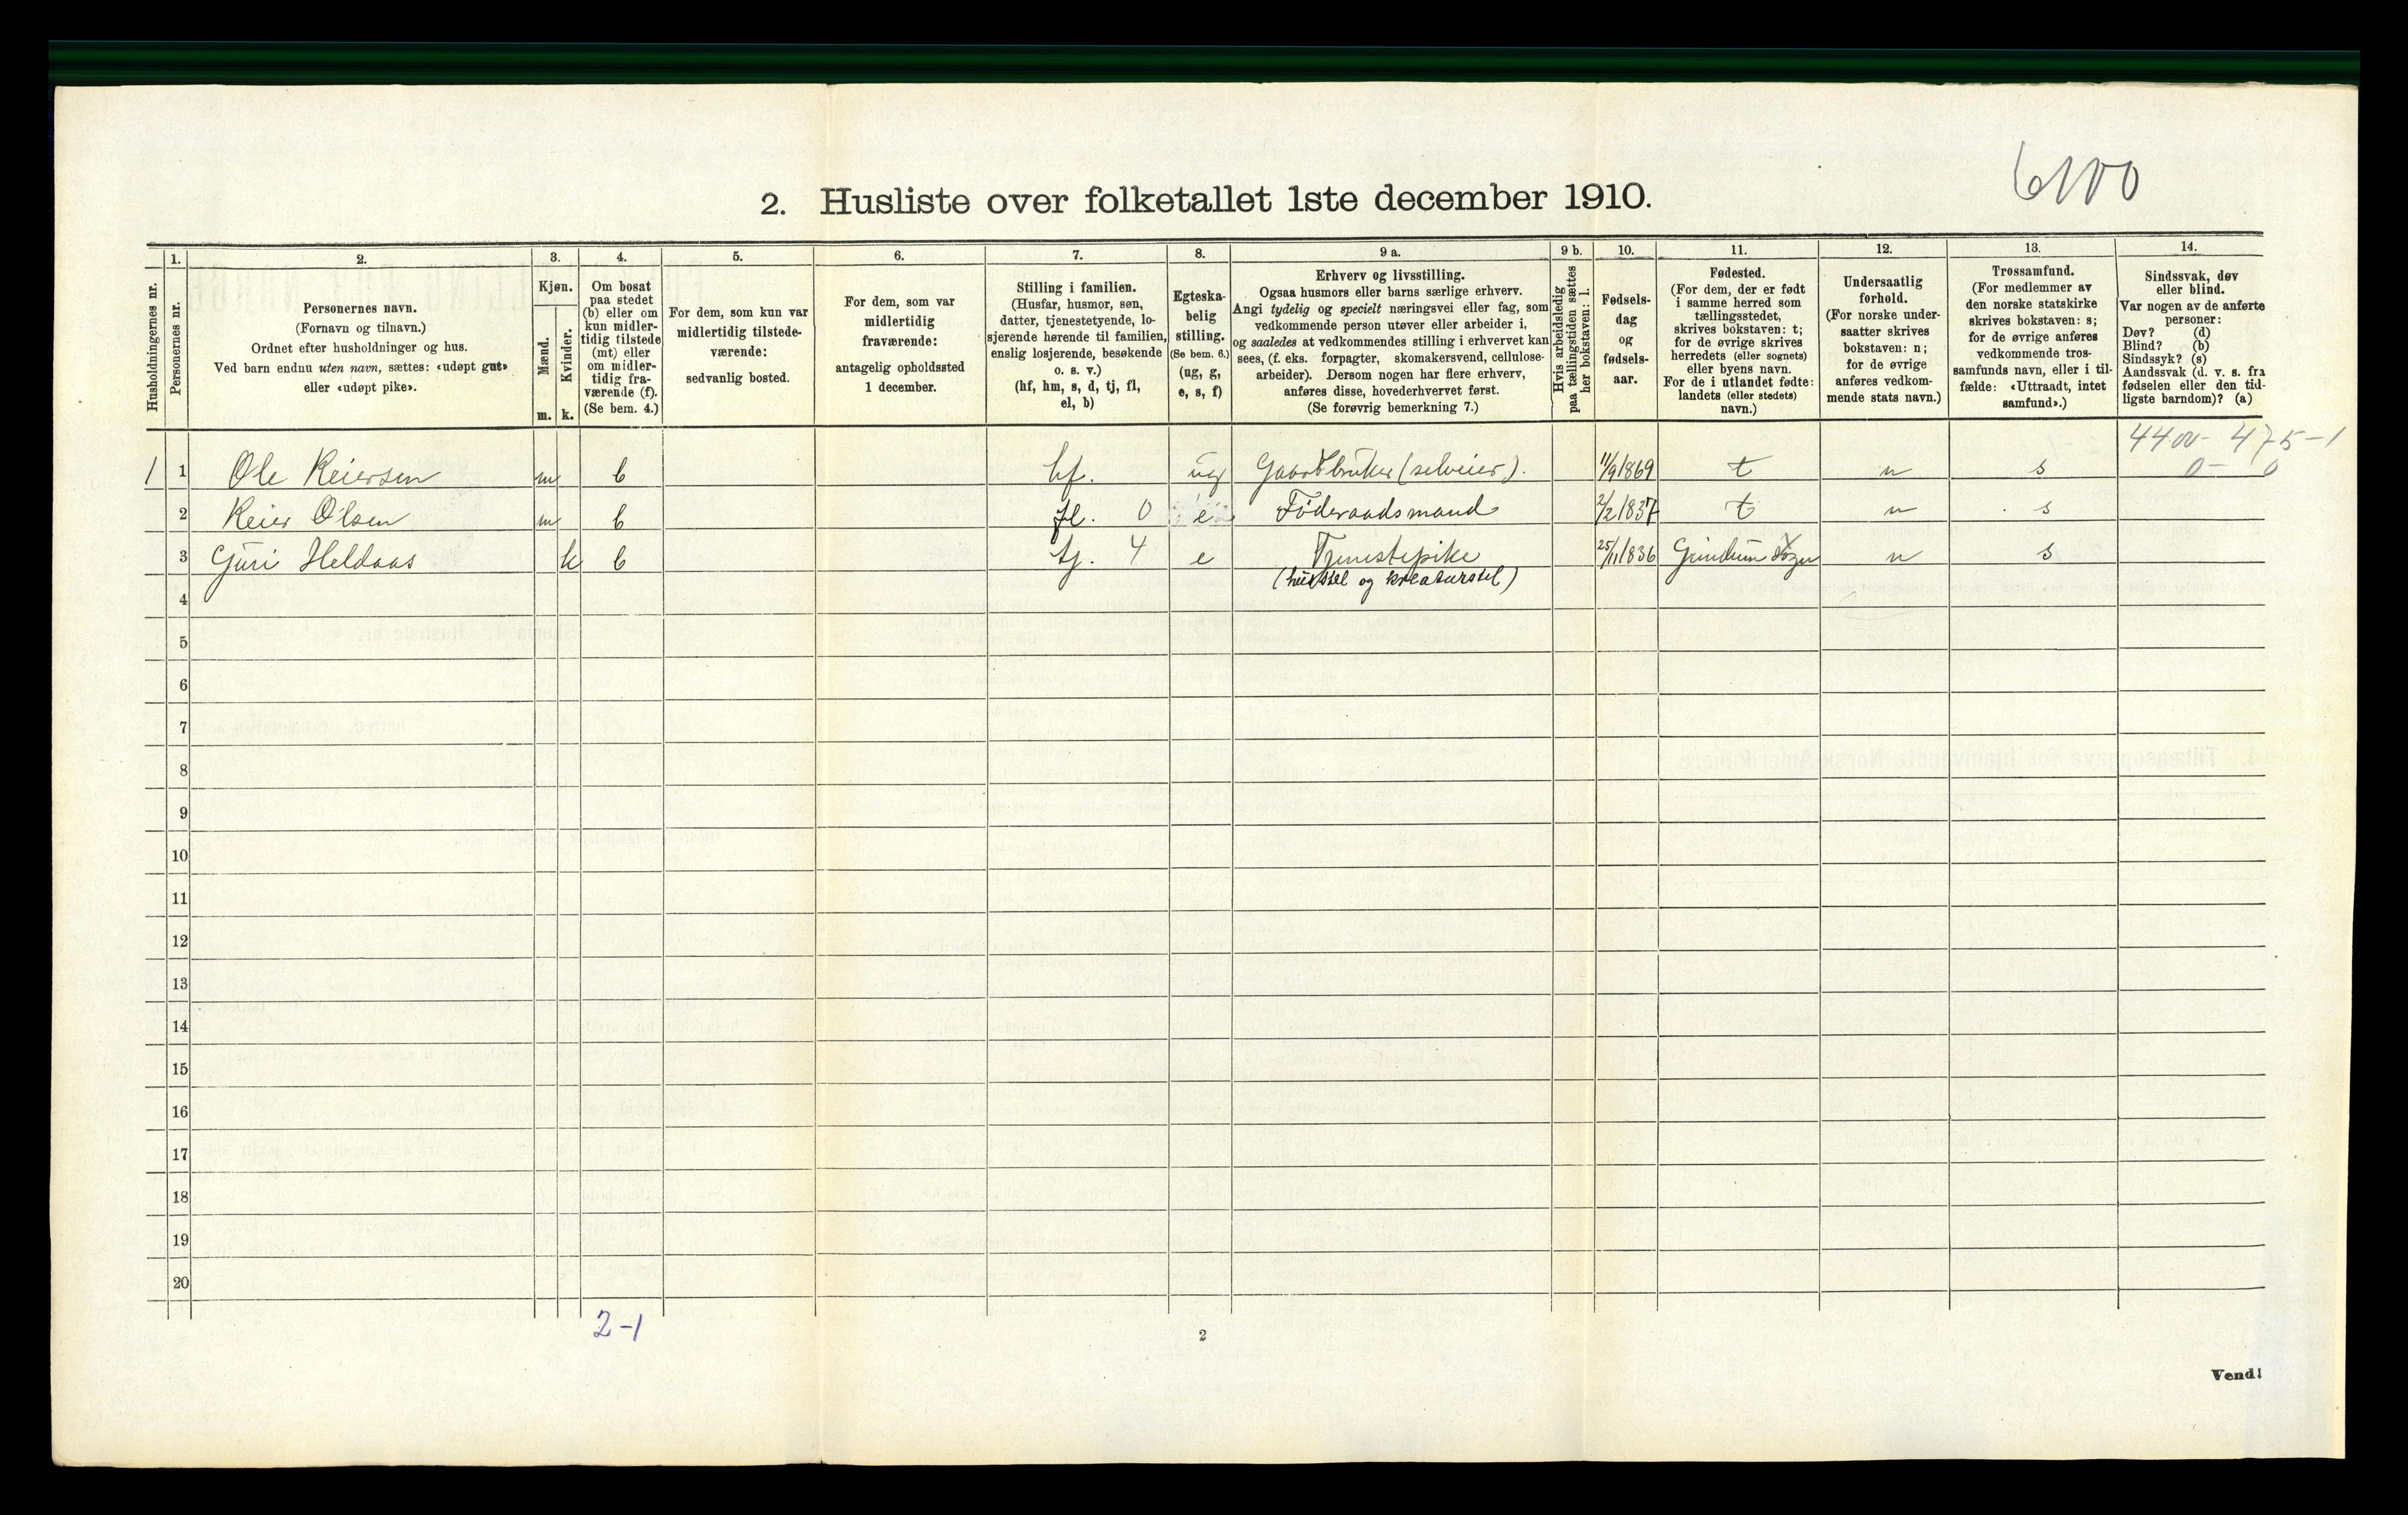 6100
2. Husliste over folketallet 1ste december 1910.
Husholdningernes nr.
1.
Personernes nr.
2.
Personernes navn.
(Fornavn og tilnavn.)
Ordnet efter husholdninger og hus.
Ved barn endnu uten navn, sættes: «udøpt gut»
eller «udøpt pike».
3.
Kjøn.
Mænd.
Kvinder.
m. k.
4.
Om bosat
paa stedet
(b) eller om
kun midler-
tidig tilstede
(mt) eller
om midler-
tidig fra-
værende (f).
(Se bem. 4.)
5.
For dem, som kun var
midlertidig tilstede-
værende:
sedvanlig bosted.
6.
For dem, som var
midlertidig
fraværende:
antagelig opholdssted
1 december.
7.
Stilling i familien.
(Husfar, husmor, søn,
datter, tjenestetyende, lo-
sjerende hørende til familien,
enslig losjerende, besøkende
o. s. v.)
(hf, hm, s, d, tj, fl,
el, b)
8.
Egteska-
belig
stilling.
(Se bem. 6.)
(ug, g,
e, s, f)
9 a.
Erhverv og livsstilling.
Ogsaa husmors eller barns særlige erhverv.
Angi tydelig og specielt næringsvei eller fag, som
vedkommende person utøver eller arbeider i,
og saaledes at vedkommendes stilling i erhvervet kan
sees, (f. eks. forpagter, skomakersvend, cellulose-
arbeider). Dersom nogen har flere erhverv,
anføres disse, hovederhvervet først.
(Se forøvrig bemerkning 7.)
9 b.
Hvis arbeidsledig
paa tællingstiden sættes
her bokstaven: l.
10.
Fødsels-
dag
og
fødsels-
aar.
11.
Fødested.
(For dem, der er født
i samme herred som
tællingsstedet,
skrives bokstaven: t;
for de øvrige skrives
herredets (eller sognets)
eller byens navn.
For de i utlandet fødte:
landets (eller stedets)
navn.)
12.
Undersaatlig
forhold.
(For norske under-
saatter skrives
bokstaven: n;
for de øvrige
anføres vedkom-
mende stats navn.)
13.
Trossamfund.
(For medlemmer av
den norske statskirke
skrives bokstaven: s;
for de øvrige anføres
vedkommende tros-
samfunds navn, eller i til-
fælde: «Uttraadt, intet
samfund».)
14.
Sindssvak, døv
eller blind.
Var nogen av de anførte
personer:
Døv? (d)
Blind? (b)
Sindssyk? (s)
Aandssvak (d. v. s. fra
fødselen eller den tid-
ligste barndom)? (a)
4400- 475-1
1 1 Ole Reiersen m b hf. ug Gaardbruker (selveier). 11/9 1869 t n s 0- 0
2 Reier Olsen m b fl. 0 e Føderaadsmand 2/2 1837 t n s
3 Guri Heldaas k b tj. 4 e Tjenestepike 25/11 1836 n s
(husstel og kreaturstel)
4
5
6
7
8
9
10
11
12
13
14
15
16
17
18
19
20
2-1
2
Vend!